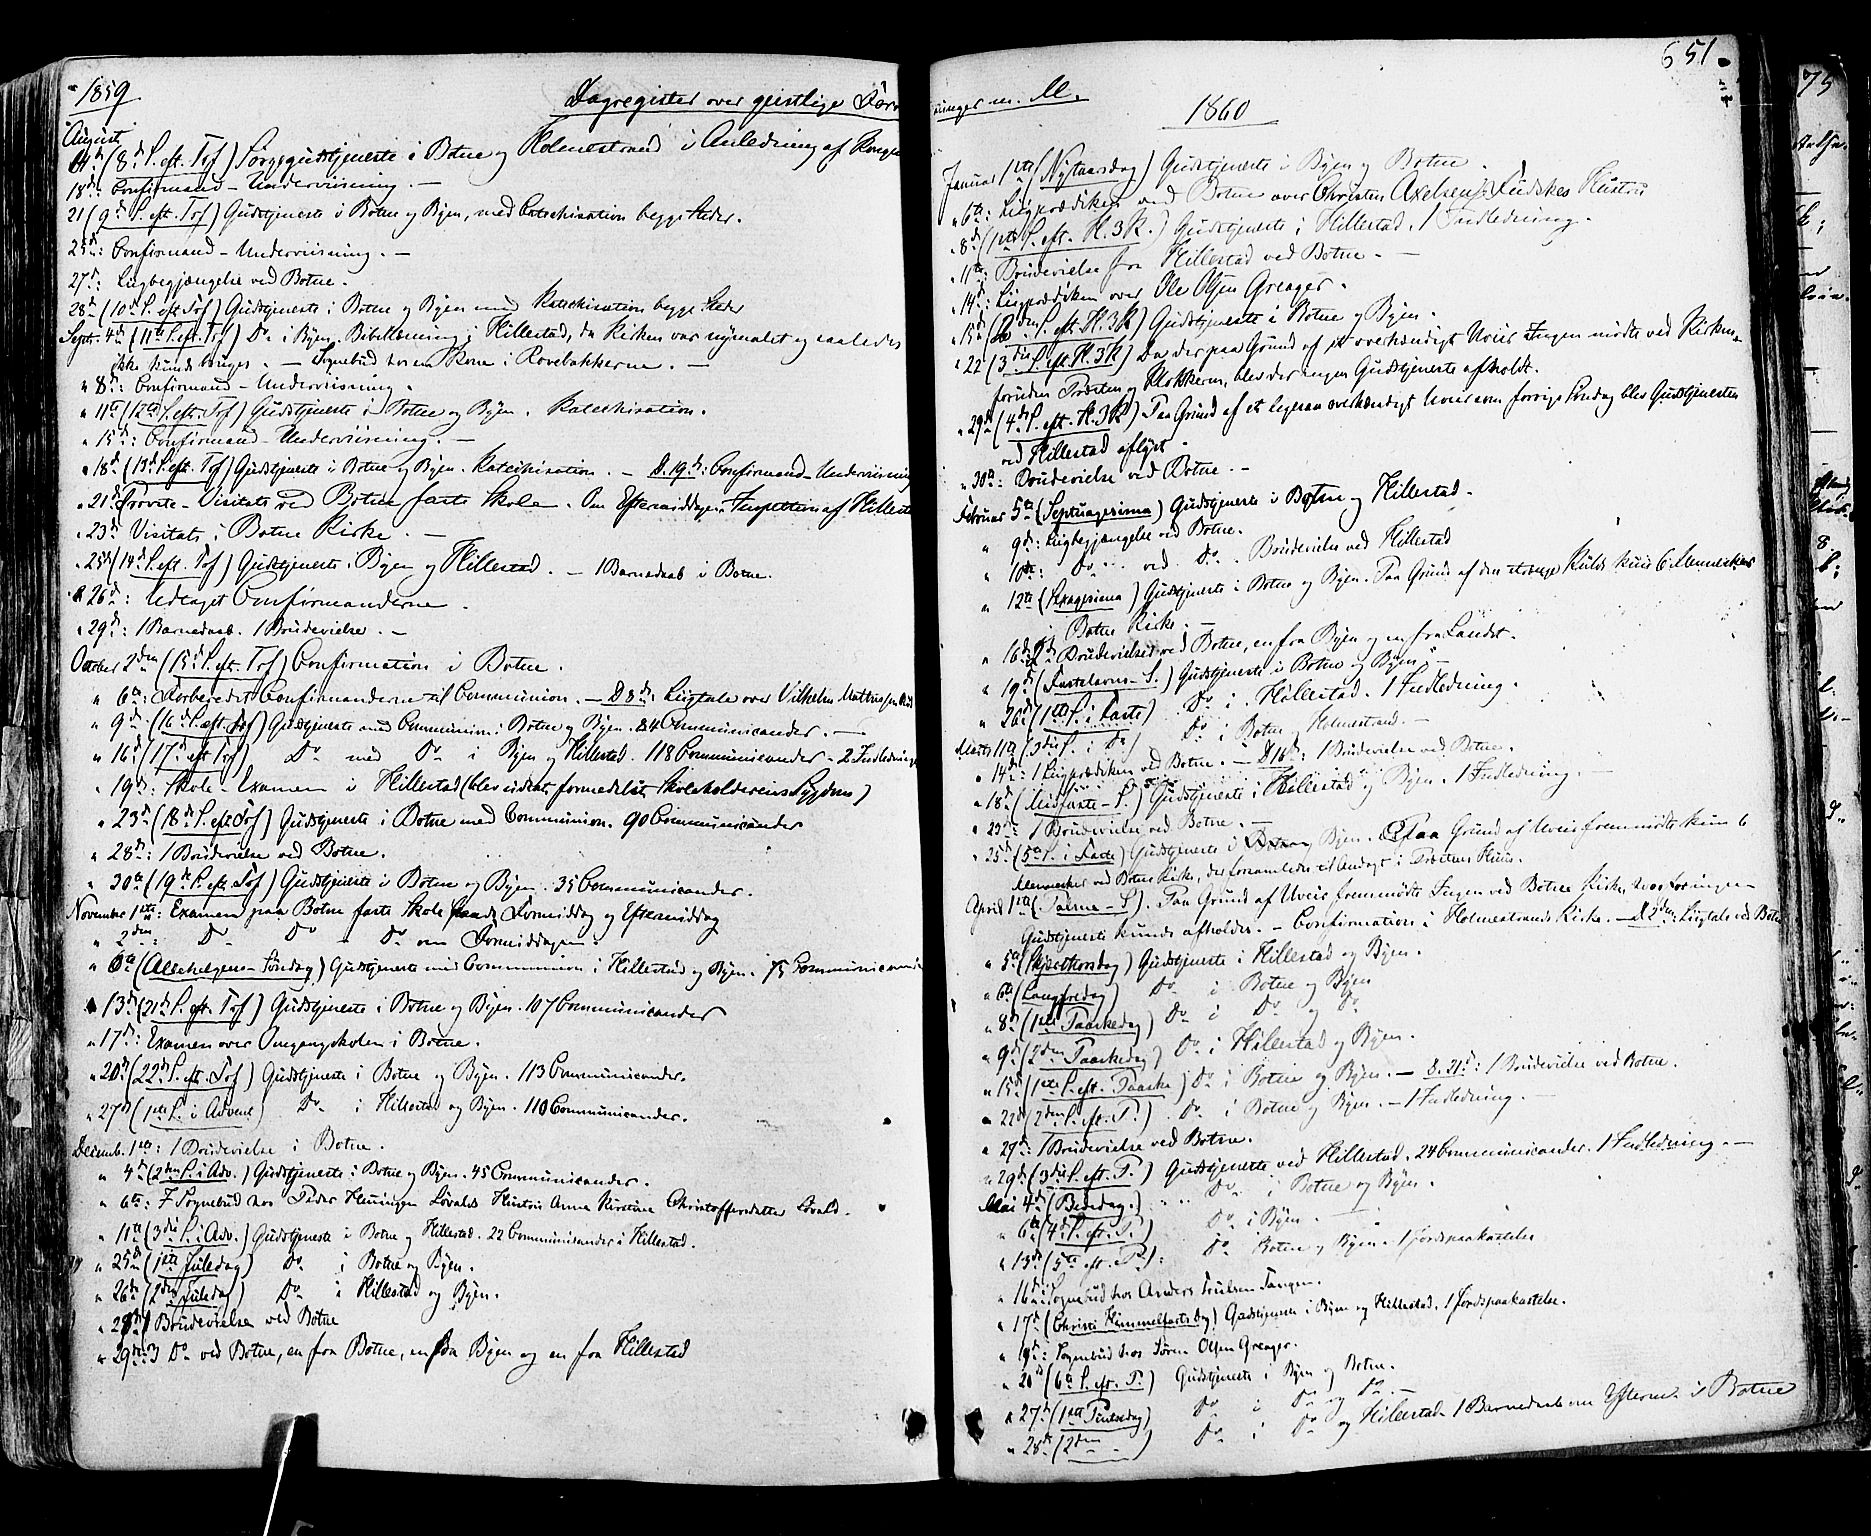 1859
Dagregister over geistlige Forr
August
14d (8d S. eft. Tr.) Sørgegudstjeneste i Botne og Holmestrand i Anledning af Kongen
18d Confirmand-Underviisning. —
21 (9d S. eft. Trf) Gudstjeneste i Botne og Byen, med Catechisation begge Steder.
25d: Confirmand-Underviisning. —
27d: Liigbegjængelse ved Botne.
28d (10d S. eft. Trf) Gudstjeneste i Botne og Byen med Katechisation begge Steder
Septr. 4d (11te S. eft. Trf) Do i Byen. Bibellæsning i Hillestad, da Kirken var nymalet og saaledes
ikke kunde bruges. — Sognebud hos en Kone i Rovebakkerne. —
" 8d: Confirmand-Underviisning.
" 11te (12te S. eft. Trf) Gudstjeneste i Botne og Byen. Katechisation.
" 15d: Confirmand-Underviisning. —
" 18d (13d S. eft. Trf) Gudstjeneste i Botne og Byen. Katechisation. — D. 19d: Confirmand-Underviisning
" 21d Provste-Visitats ved Botne faste Skole. Om Eftermiddagen Inspection af Hilleste
" 23d Visitats i Botne Kirke. —
" 25d (14d S. eft. Trf) Gudstjeneste i Byen og Hillestad. — 1 Barnedaab i Botne.
" 26d: Udtaget Confirmanderne.
" 29d: 1 Barnedaab. 1 Brudevielse. —
October 2den (15d S. eft. Trf) Confirmation i Botne.
" 6te: Forberedet Confirmanderne til Communion. — D 8d: Liigtale over Vilhelm
" 9d (16d S. eft. Trf) Gudstjeneste med Communion i Botne og Byen. 84 Communicander. —
" 16d (17d eft Trf) Do med Do i Byen og Hillestad. 118 Communicander — 2 Indledninger
" 19d: Skole-Examen i Hillestad (blev udsat formedelst Skoleholderens Sygdom)
" 23d (18d S. eft Trf) Gudstjeneste i Botne med Communion. 90 Communicander
" 28d: 1 Brudevielse ved Botne.
" 30te (19d S. eft. Trf) Gudstjeneste i Botne og Byen. 35 Communicander.
November 1ste: Examen paa Botne faste Skole Formiddag og Eftermiddag
" 2den: Do Do Do om Formiddagen.
" 6te (Allehelgens-Søndag) Gudstjeneste med Communion i Hillestad og Byen. 75 Communicander
" 13d (21d S. eft. Trf) Gudstjeneste i Botne og Byen. 107 Communicander
" 17d: Examen over Omgangsskolen i Botne.
" 20d (22d S. eft. Trf) Gudstjeneste i Botne og Byen. 113 Communicander.
" 27d (1ste S. i Advent) Do i Hillestad og Byen. 110 Communicander.
Decemb. 1ste: 1 Brudevielse i Botne.
" 4d (2den S. i Adv.) Gudstjeneste i Botne og Byen. 45 Communicander.
" 6te: I Sognebud hos Peder Henningsen Løvalds Hustru Anne Kirstine Christoffersdatter Løvald.
" 11te (3die S. i Adv.) Gudstjeneste i Botne og Hillestad. 22 Communicander i Hillestad.
" 25d (1ste Juledag) Do i Botne og Byen.
" 26d (2den Juledag) Do i Hillestad og Byen.
" 28d 1 Brudevielse ved Botne
" 29d: 3 Do ved Botne, en fra Botne, en fra Byen og en fra Hillestad
651
ninger m. M.
1860
Januar 1ste (Nytaarsdag) Gudstjeneste i Byen og Botne.
" 6te: Liigprædiken ved Botne over Christen Axelsen Hustru
" 8d (1ste S. eft. H. 3 K.) Gudstjeneste i Hillestad. 1 Indledning.
" 11te: Brudevielse fra Hillestad ved Botne. —
" 14d: Liigprædiken over Ole Olsen Greager.
" 15d (2den S. eft. H. 3 K) Gudstjeneste i Botne og Byen.
" 22 (3die S. eft H. 3 K) Da der paa Grund af et overhændigt Uveir Ingen mødte ved Kirken,
foruden Præsten og Klokkeren, blev der ingen Gudstjeneste afholdt.
" 29d (4d S. eft. H. 3 K) Paa Grund af et ligesaa overhændigt Uveir som forrige Søndag blev Gudstjenesten
ved Hillestad aflyst.
" 30te: Brudevielse ved Botne. —
Februar 5te (Septuagesima) Gudstjeneste i Botne og Hillestad.
" 9d: Liigbegjængelse ved Botne.
" 10de: Do ved Do. Brudevielse ved Hillestad
" 12te (Sexagesima) Gudstjeneste i Botne og Byen. Paa Grund af den strenge Kulde kun 6 Mennesker
i Botne Kirke. —
" 16d: 2 Brudevielser ved Botne, en fra Byen og en fra Landet.
" 19d (Fastelavns-S.) Gudstjeneste i Botne og Byen. —
" 26d (1ste S. i Faste) Do i Hillestad. 1 Indledning.
Marts 11te (3die S. i Do) Do i Botne Holmestrand. —
" 14d: 1 Liigprædiken ved Botne. — D 16d: 1 Brudevielse ved Botne.
" 18d (Midfaste-S.) Gudstjeneste i Hillestad og Byen. 1 Indledning. —
" 23d: 1 Brudevielse ved Botne. —
" 25d (5te S. i Faste) Gudstjeneste i Byen. Paa Grund af Uveir fremmødte kun 6
Mennesker ved Botne Kirke, der forsamledes til Andagt i Præstens Huus.
April 1ste (Palme-S). Paa Grund af Uveir fremmødte Ingen ved Botne Kirke, hvorfor ingen
Gudstjeneste kunde afholdes. — Confirmation i Holmestrands Kirke. — d 2den: Liigtale ved Botne
" 5te (Skjærthorsdag) Gudstjeneste i Hillestad og Byen.
" 6te (Langfredag) Do i Botne og Byen
" 8d (1ste Paaskedag) Do i Do og Do
" 9d (2den Paaskedag) Do i Hillestad og Byen.
" 15d (1ste S. eft. Paaske) Do i Botne og Byen. — D. 21d: 1 Brudevielse ved Botne.
" 22d (2den S. eft. P.) Do i Botne og Byen. — 1 Indledning. —
" 27d: 1 Brudevielse ved Botne.
" 29d (3die S. eft. P.) Gudstjeneste ved Hillestad. 24 Communicander. 1 Indledning. —
Mai 4d (Bededag.) Do i Botne og Byen.
" 6te (4d S. eft. P.) Do i Byen. —
" 13d (5te eft. P.): Do Botne og Byen. 1 Jordpaakastelse
" 16d: Sognebud hos Anders Truelsen Tangen.
" 17d (Christi Himmelfartsdag) Gudstjeneste i Byen og Hillestad. 1 Jordpaakastelse.
" 19d: Sognebud hos Søren Olsen Greager.
" 20d (6te S. eft. P.) Gudstjeneste i Byen og Botne.
" 27d (1ste Pintsedag) Do i Do og Do. —
" 28d (2den —) Do i Do og Hillestad. 1 Barnedaab om Efterm. i Botne
75